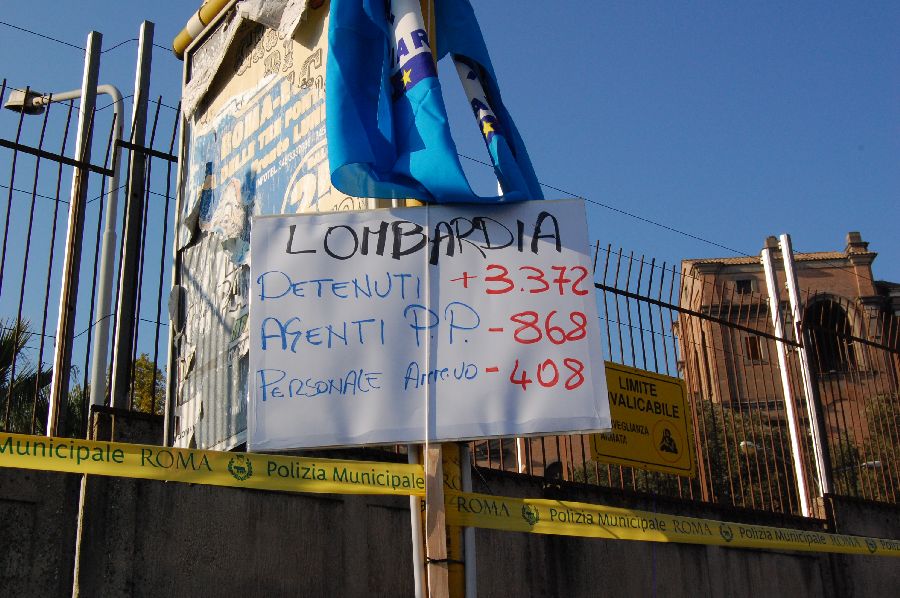 AR
ROMA-
DELLE TRE FON
LOMBARDIA
DETENUTI +3.372
AGENTI P.P. -868
PERSONALE Amm.vo -408
LIMITE
VALICABILE
VEGLIANZA
ARMATA
Municipale ROMA Polizia Municipale
ROMA Polizia Municipale ROMA Polizia Municipale